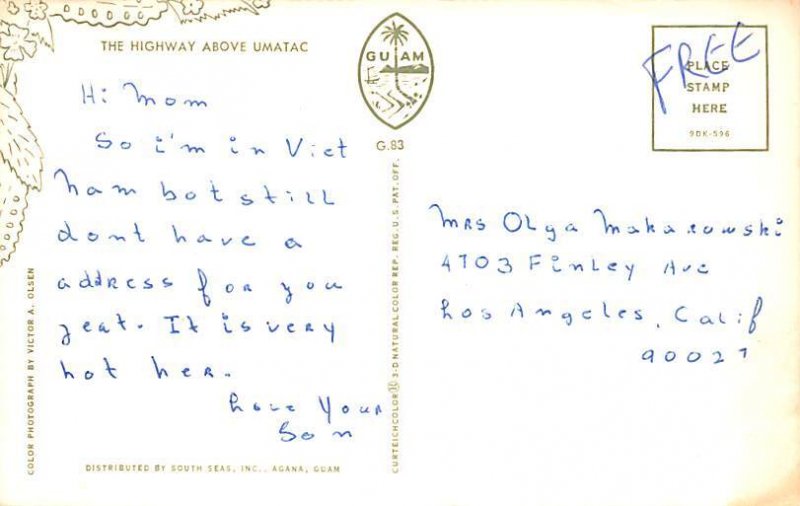 THE HIGHWAY ABOVE UMATAC
Hi Mom
So i'm in Viet
nam bot still
dont have a
address for you
yeat. It is very
hot her.
Love Your
Son
COLOR PHOTOGRAPH BY VICTOR A. OLSEN
DISTRIBUTED BY SOUTH SEAS, INC., AGANA, GUAM
GUAM
G.83
CURTEICHCOLOR 3-D NATURAL COLOR REP. REG. U.S. PAT. OFF.
FREE
PLACE
STAMP
HERE
9DK-596
MRS OLga Makarowski
4703 FinLey Ave
Los Angeles, Calif
90027